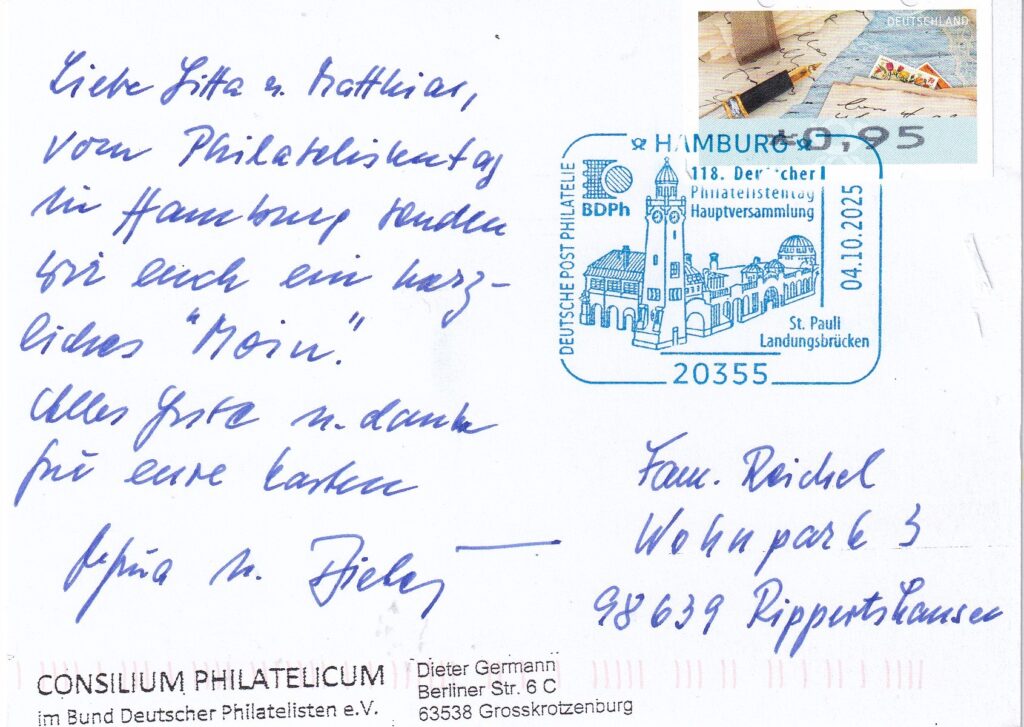 Liebe Gitta u. Matthias,
vom Philatelistentag
in Hamburg senden
wir euch ein herz-
liches "Moin".
Alles Gute u. danke
für eure Karten
u. Dieter
DEUTSCHLAND
*0,95
HAMBURG
118. Deutscher
Philatelistentag
Hauptversammlung
BDPh
DEUTSCHE POST PHILATELIE
04.10.2025
St. Pauli
Landungsbrücken
20355
Fam. Reichel
Wohnpark 3
98639 Rippershausen
CONSILIUM PHILATELICUM
im Bund Deutscher Philatelisten e.V.
Dieter Germann
Berliner Str. 6 C
63538 Grosskrotzenburg